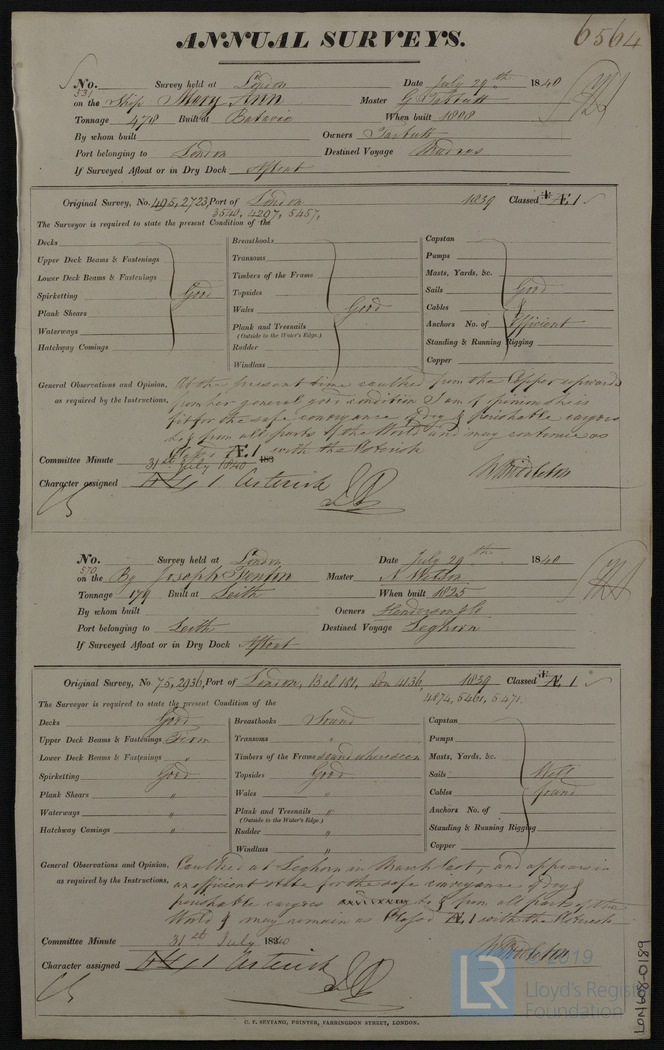 6564
ANNUAL SURVEYS.
No. 531 Survey held at London Date July 29th 1840
on the Ship Mary Ann Master G Tarbutt
Tonnage 478 Built at Batavia When built 1808
By whom built Owners Tarbutt
Port belonging to London Destined Voyage Madras
If Surveyed Afloat or in Dry Dock Afloat
Original Survey, No. 495, 2723, Port of London 1839 Classed Æ 1
3540, 4207, 5457,
The Surveyor is required to state the present Condition of the
Decks Breasthooks Capstan
Upper Deck Beams & Fastenings Transoms Pumps
Lower Deck Beams & Fastenings Timbers of the Frame Masts, Yards, &c.
Spirketting Good Topsides Sails Good
Plank Shears Wales Good Cables &
Waterways Plank and Treenails Anchors No. of Efficient
(Outside to the Water's Edge.)
Hatchway Comings Rudder Standing & Running Rigging
Windlass Copper
General Observations and Opinion, At the present time caulked from the Copper upwards
as required by the Instructions, from her general good condition I am of opinion she is
fit for the safe conveyance of dry & perishable cargoes
to & from all parts of the World and may continue as
Æ 1 with the Asterisk
Committee Minute 31st July 1840 183
Character assigned 1 Asterisk
W Middleton
No. 570 Survey held at London Date July 29th 1840
on the Bg Joseph Fenton Master N Watson
Tonnage 179 Built at Leith When built 1825
By whom built Owners Henderson & Co
Port belonging to Leith Destined Voyage Leghorn
If Surveyed Afloat or in Dry Dock Afloat
Original Survey, No. 75, 2936, Port of London, Bel 181, Lon 4136 1839 Classed Æ 1
4874, 5461, 5471.
The Surveyor is required to state the present Condition of the
Decks Good Breasthooks Sound Capstan
Upper Deck Beams & Fastenings Firm Transoms " Pumps
Lower Deck Beams & Fastenings " Timbers of the Frame sound where seen Masts, Yards, &c.
Spirketting Good Topsides Good Sails Well
Plank Shears " Wales " Cables found
Waterways " Plank and Treenails " Anchors No. of
(Outside to the Water's Edge.)
Hatchway Comings " Rudder " Standing & Running Rigging
Windlass " Copper
General Observations and Opinion, Caulked at Leghorn in March last, and appears in
as required by the Instructions, an efficient state for the safe conveyance of dry &
perishable cargoes to & from all parts of the
World & may remain as Classed Æ 1 with the Asterisk
Committee Minute 31st July 1840
Character assigned 1 Asterisk
W Middleton
C. F. SEYFANG, PRINTER, FARRINGDON STREET, LONDON.
LON608-0189
LR
© 2019
Lloyd's Register
Foundation